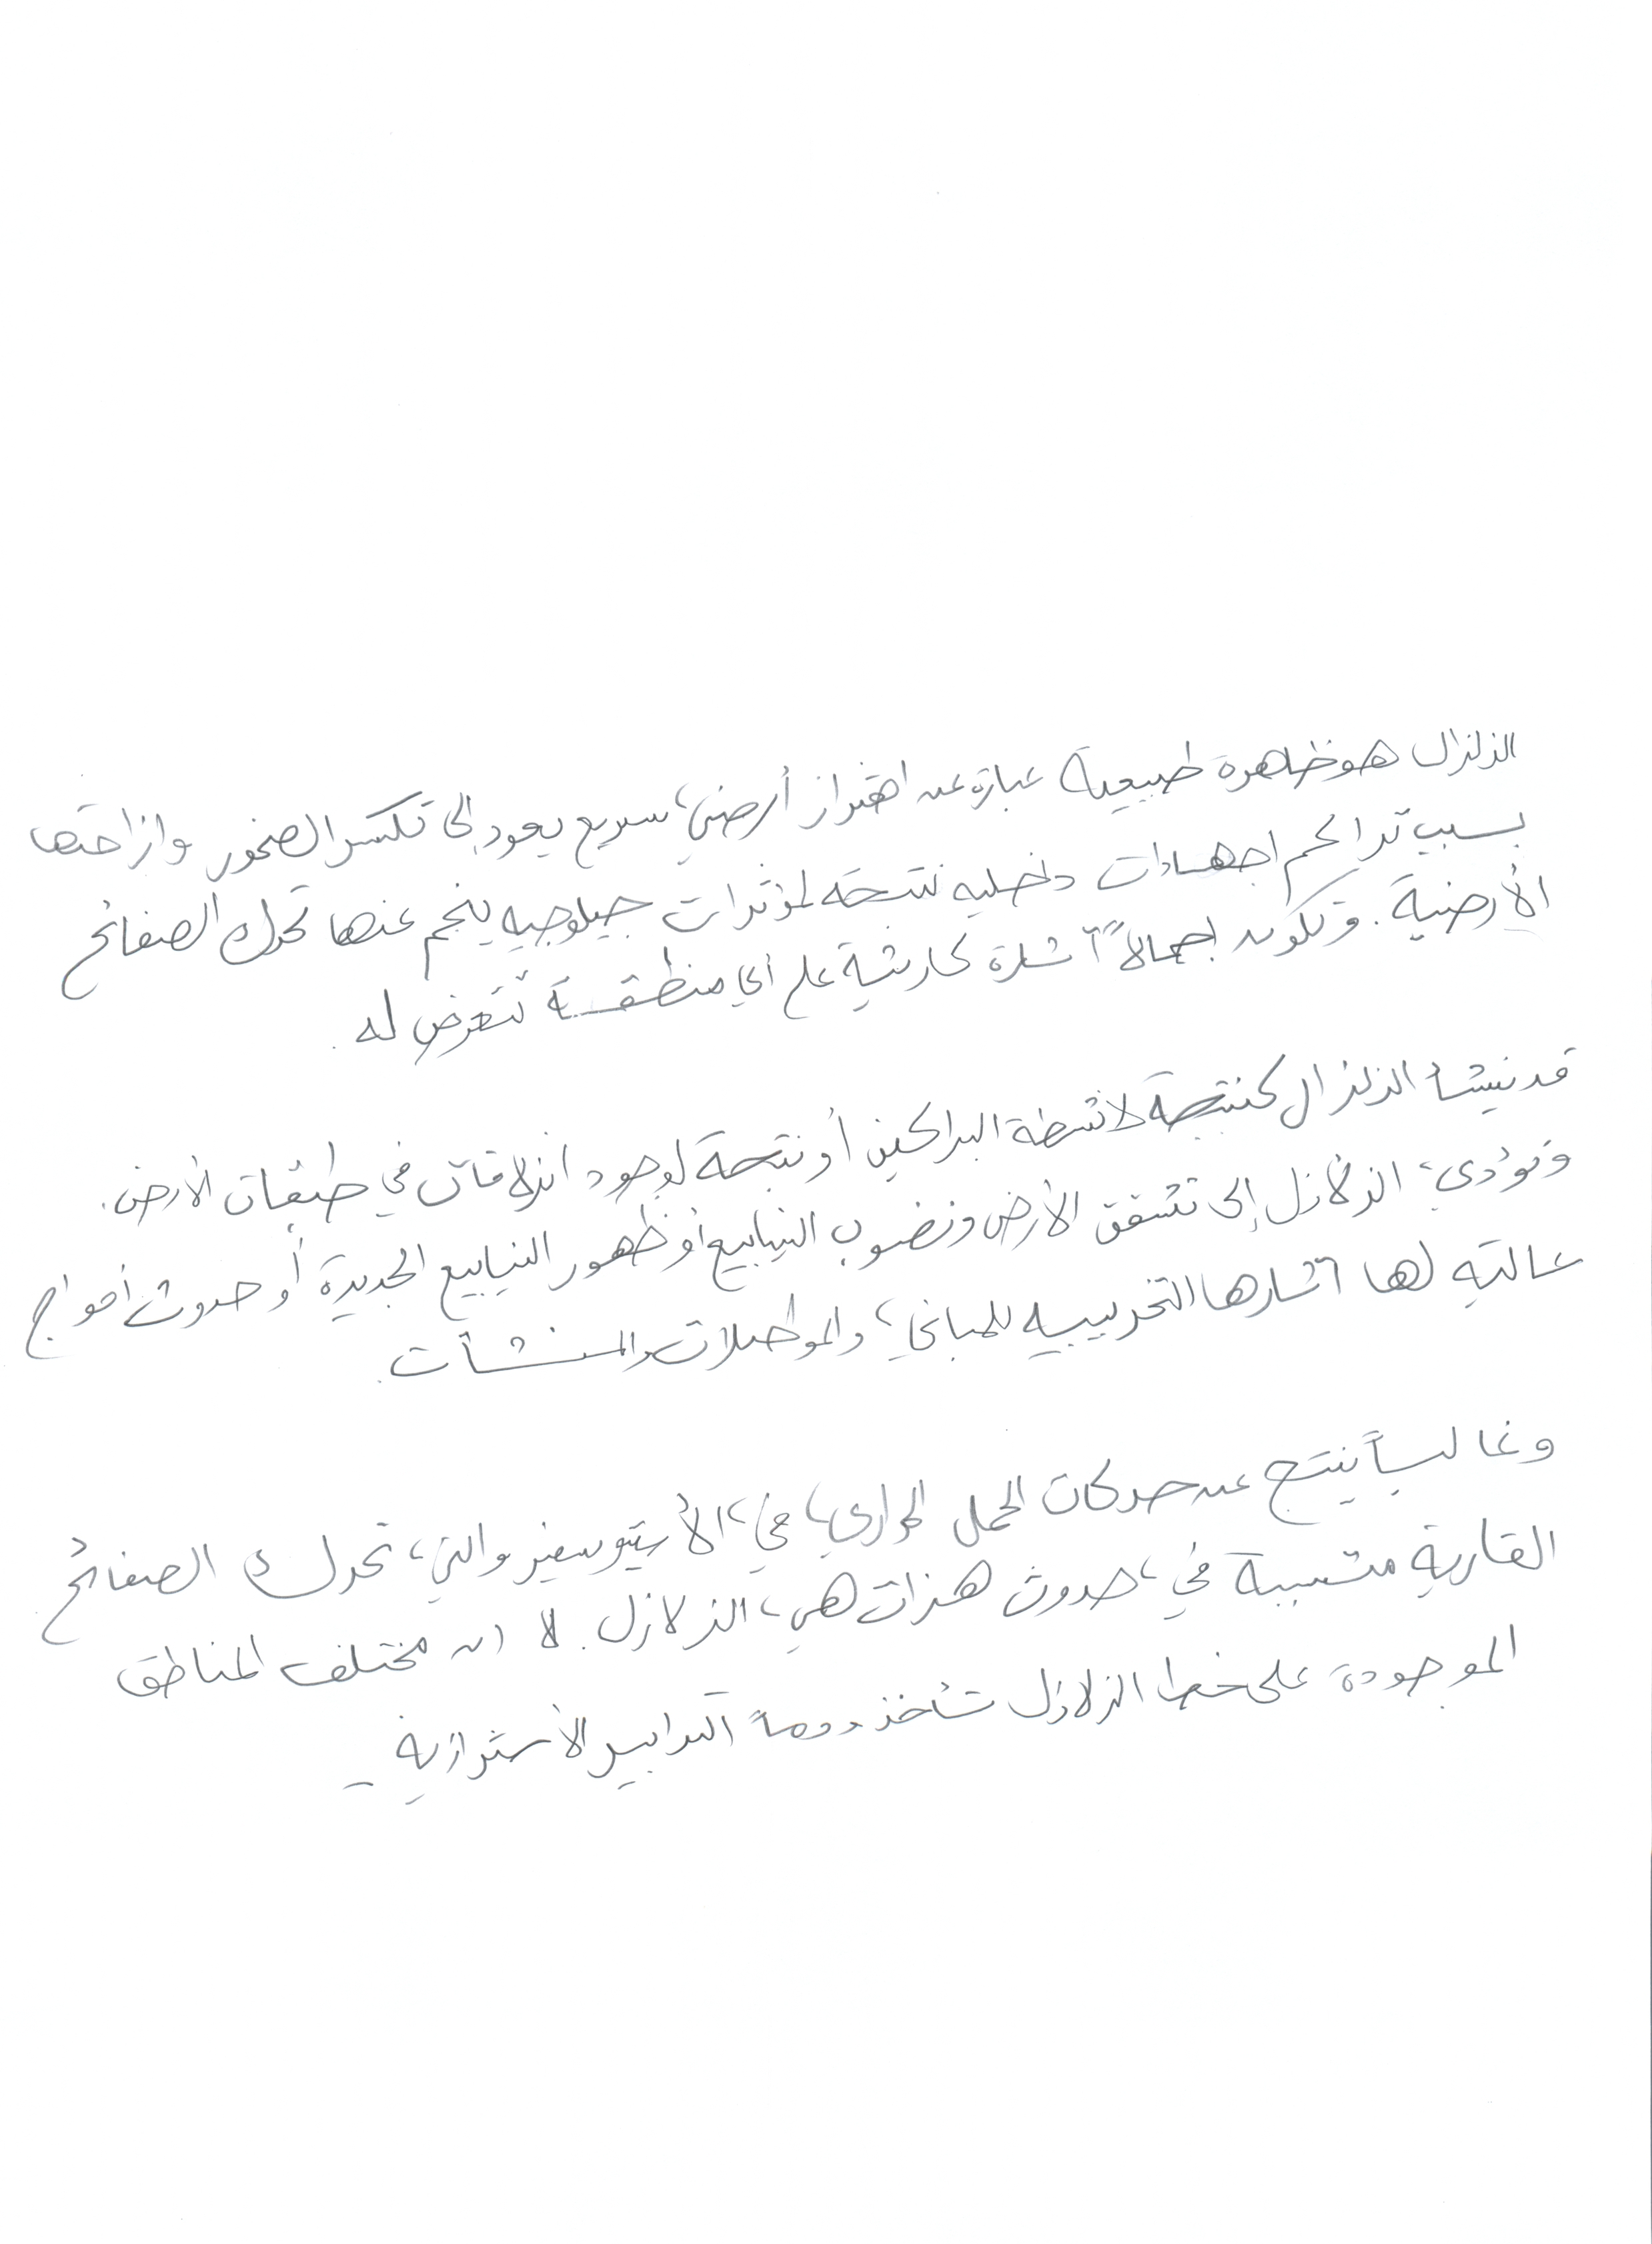 الزلزال هو ظاهرة طبيعية عبارة عن اهتزاز أرضي سريع يعود إلى تكسر الصخور وازاحتها
بسبب تراكم اجهادات داخليه نتيجه لمؤثرات جيلوجيه ينجم عنها تحرك الصفائح
الأرضية. وتكون اجمالاً آثاره كارثية على أي منطقة تتعرض له.
قد ينشأ الزلزال كنتيجة لانشطة البراكين أو نتيجة لوجود انزلاقات في طبقات الأرض.
وتؤدي الزلازل إلى تشقق الأرض ونضوب الينابيع أو ظهور الينابيع الجديدة أو حدوث أمواج
عاليه لها آثارها التخريبيه للمباني والمواصلات والمنشآت.
وغالباً ينتج عن حركات الحمل الحراري في الأستيوسفير والتي تحرك الصفائح
القارية متسببة في حدوث هزات هي الزلازل. لا ان مختلف المناطق
الموجودة على خط الزلازل تأخذ دوماً التدابير